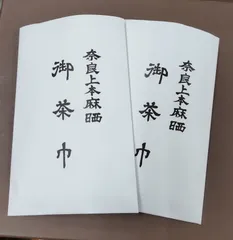 奈良上本麻晒
御茶巾
奈良上本麻晒
御茶巾